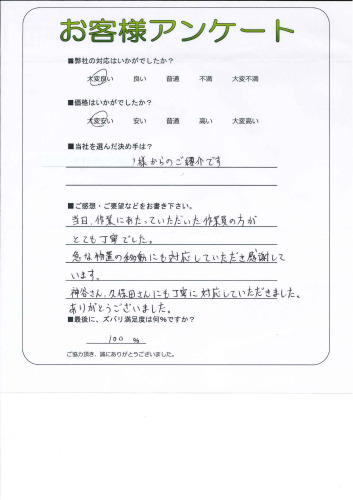 お客様アンケート
■弊社の対応はいかがでしたか？
大変良い 良い 普通 不満 大変不満
■価格はいかがでしたか？
大変安い 安い 普通 高い 大変高い
■当社を選んだ決め手は？
様からのご紹介です
■ご感想・ご要望などをお書き下さい。
当日、作業にあたっていただいた作業員の方が
とても丁寧でした。
急な物置の移動にも対応していただき感謝して
います。
神谷さん、久保田さんにも丁寧に対応していただきました。
ありがとうございました。
■最後に、ズバリ満足度は何％ですか？
100 %
ご協力頂き、誠にありがとうございました。